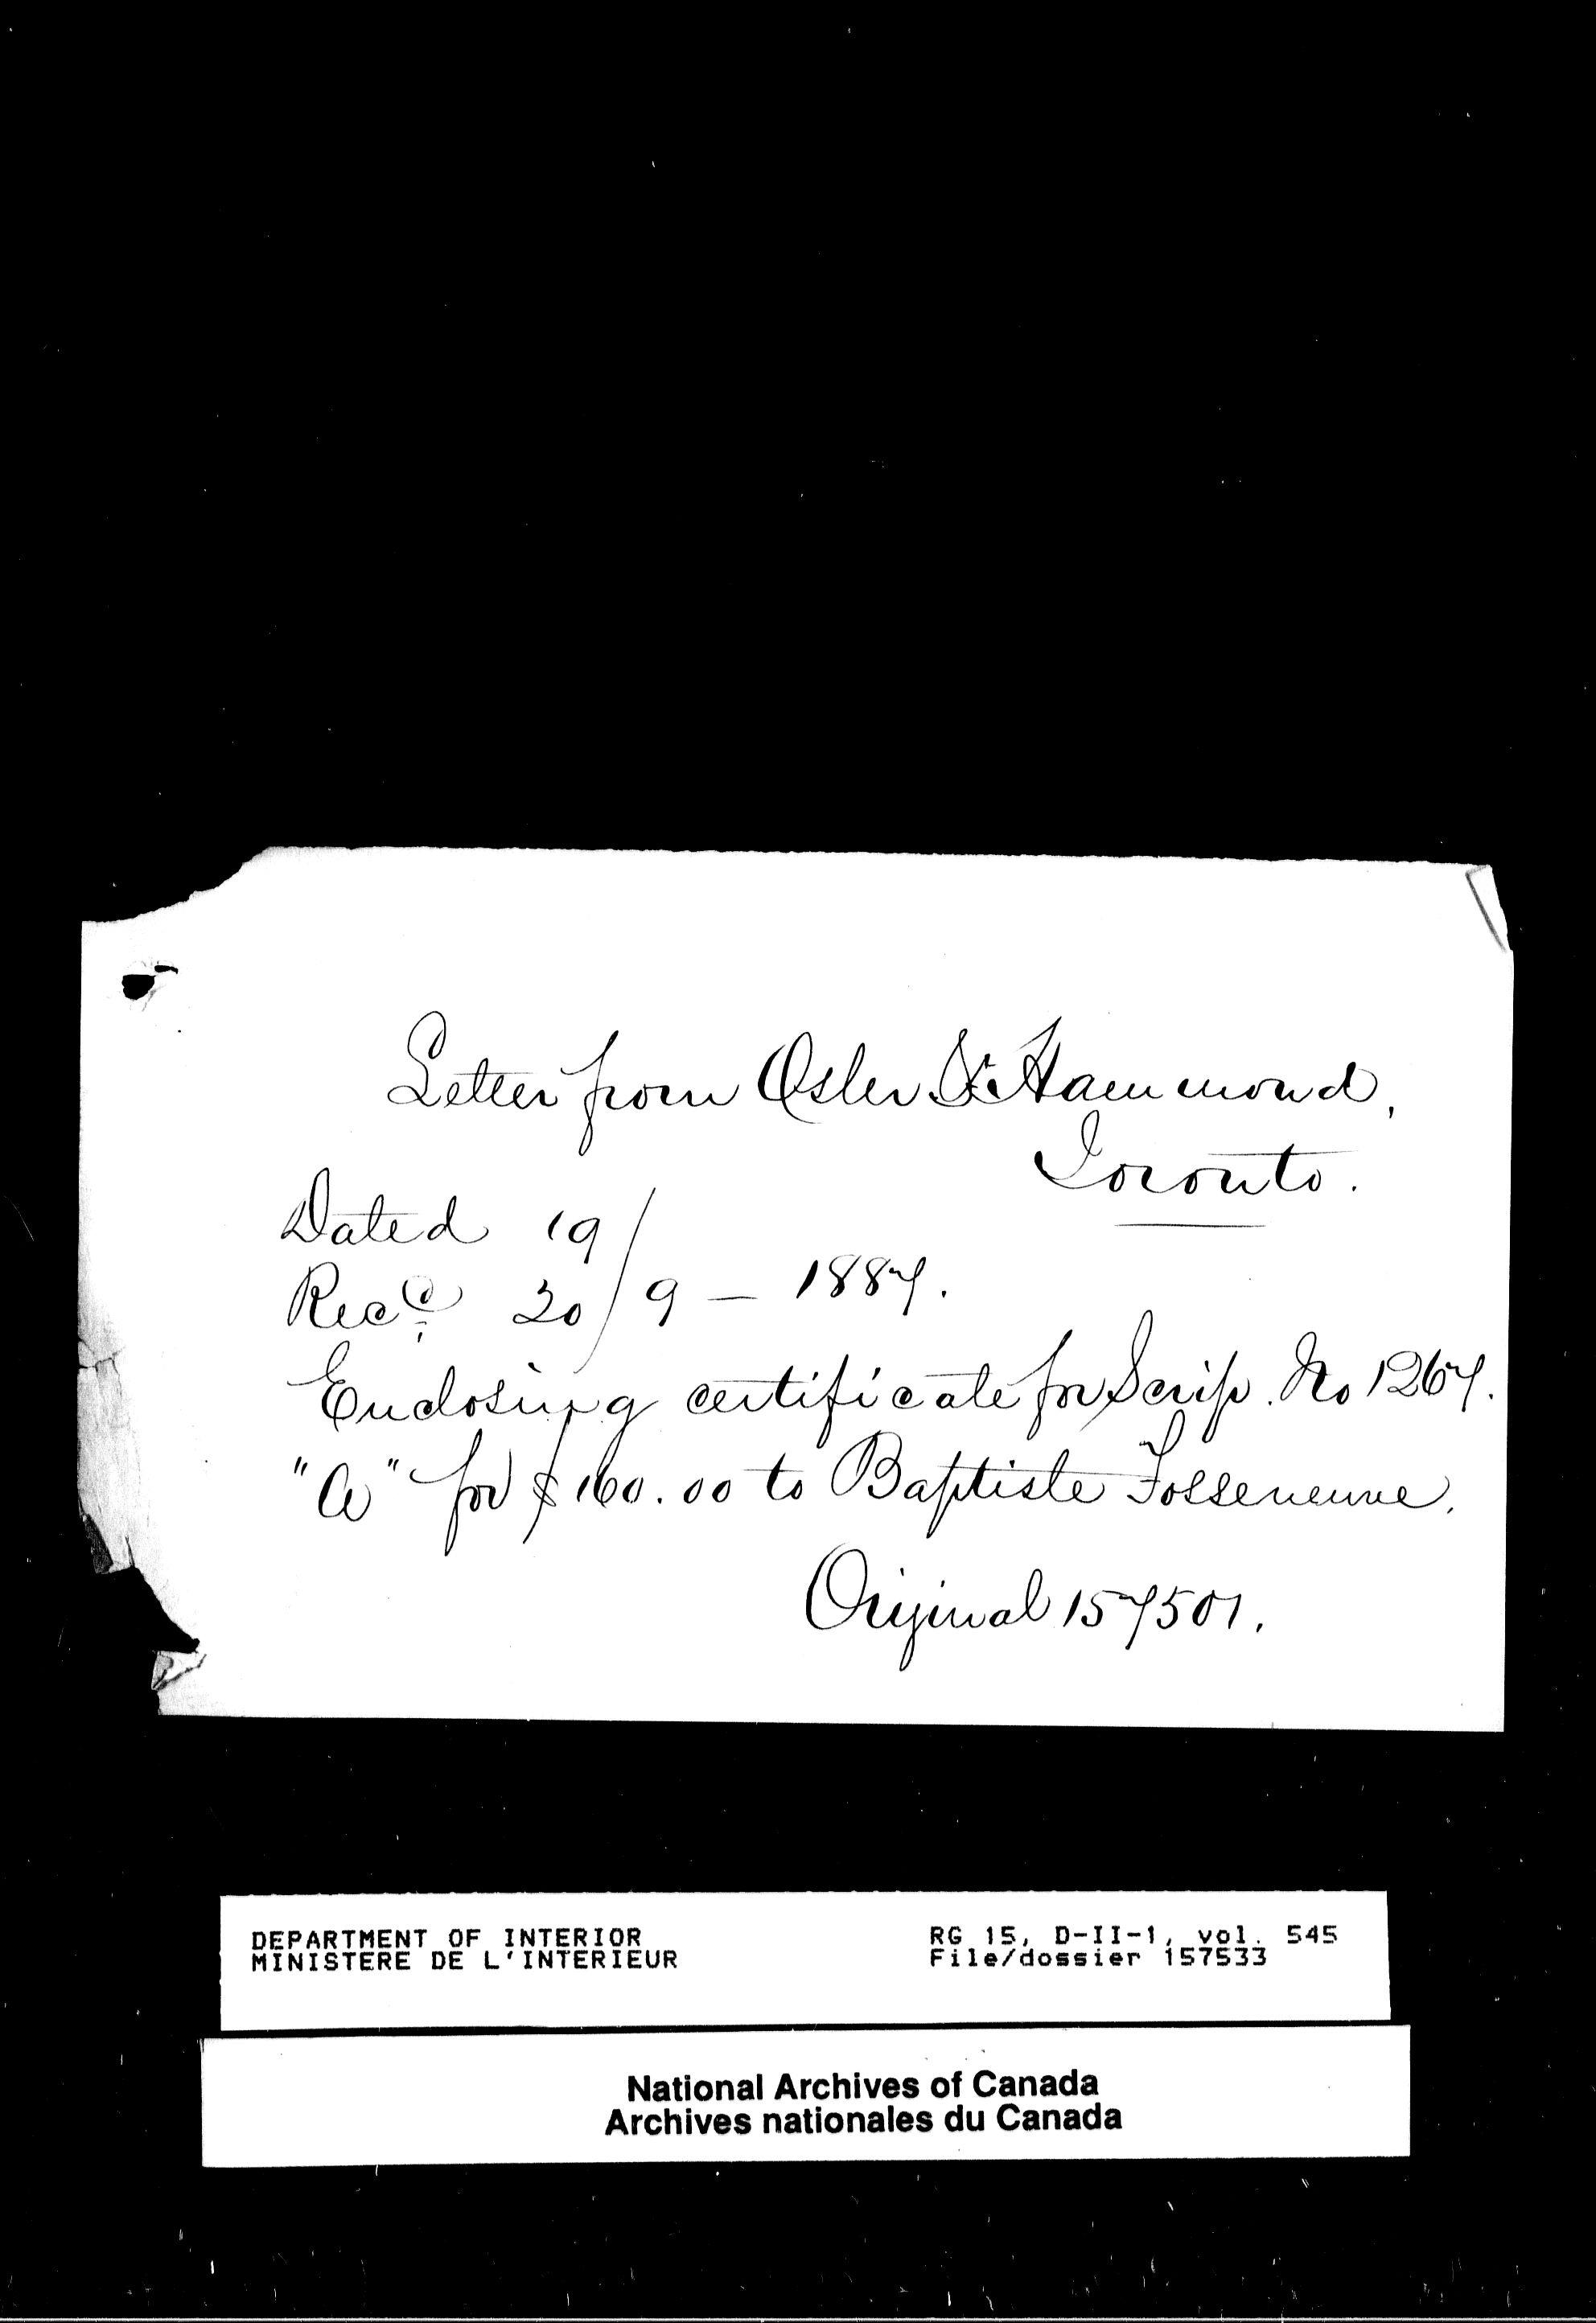 Letter from Osler & Hammond,
Toronto.
Dated 19/
Recd. 20/9 - 1887.
Enclosing certificate for Scrip. No 1267.
"A" for $160.00 to Baptiste Fosseneuve.
Original 157501.
DEPARTMENT OF INTERIOR
MINISTERE DE L'INTERIEUR
RG 15, D-II-1, vol. 545
File/dossier 157533
National Archives of Canada
Archives nationales du Canada